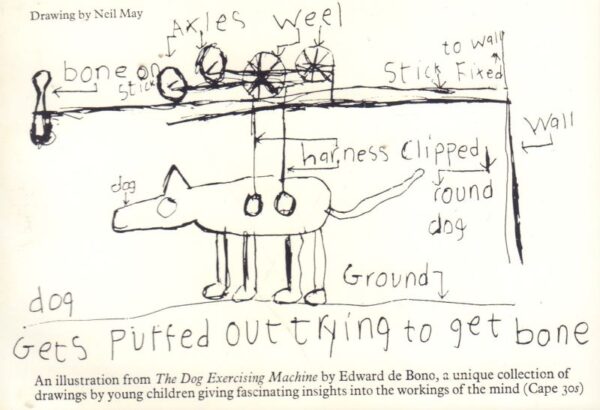 Drawing by Neil May
Axles
Weel
bone on
stick
to wall
Stick Fixed
Wall
harness Clipped
round
dog
dog
Ground
dog
Gets Puffed out trying to get bone
An illustration from The Dog Exercising Machine by Edward de Bono, a unique collection of
drawings by young children giving fascinating insights into the workings of the mind (Cape 30s)